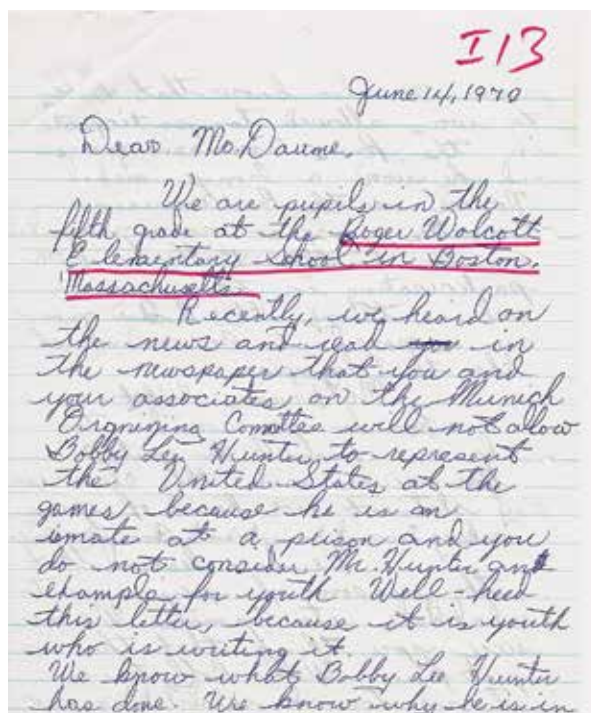 I 13
June 14, 1970
Dear Mr. Daume,
We are pupils in the
fifth grade at the Roger Wolcott
Elementary School in Boston,
Massachusetts.
Recently, we heard on
the news and read in
the newspaper that you and
your associates on the Munich
Orgnizing Comittee will not allow
Bobby Lee Hunter to represent
the United States at the
games, because he is an
inmate at a prison and you
do not consider Mr. Hunter an
example for youth Well-heed
this letter, because it is youth
who is writing it.
We know what Bobby Lee Hunter
has done. We know why he is in